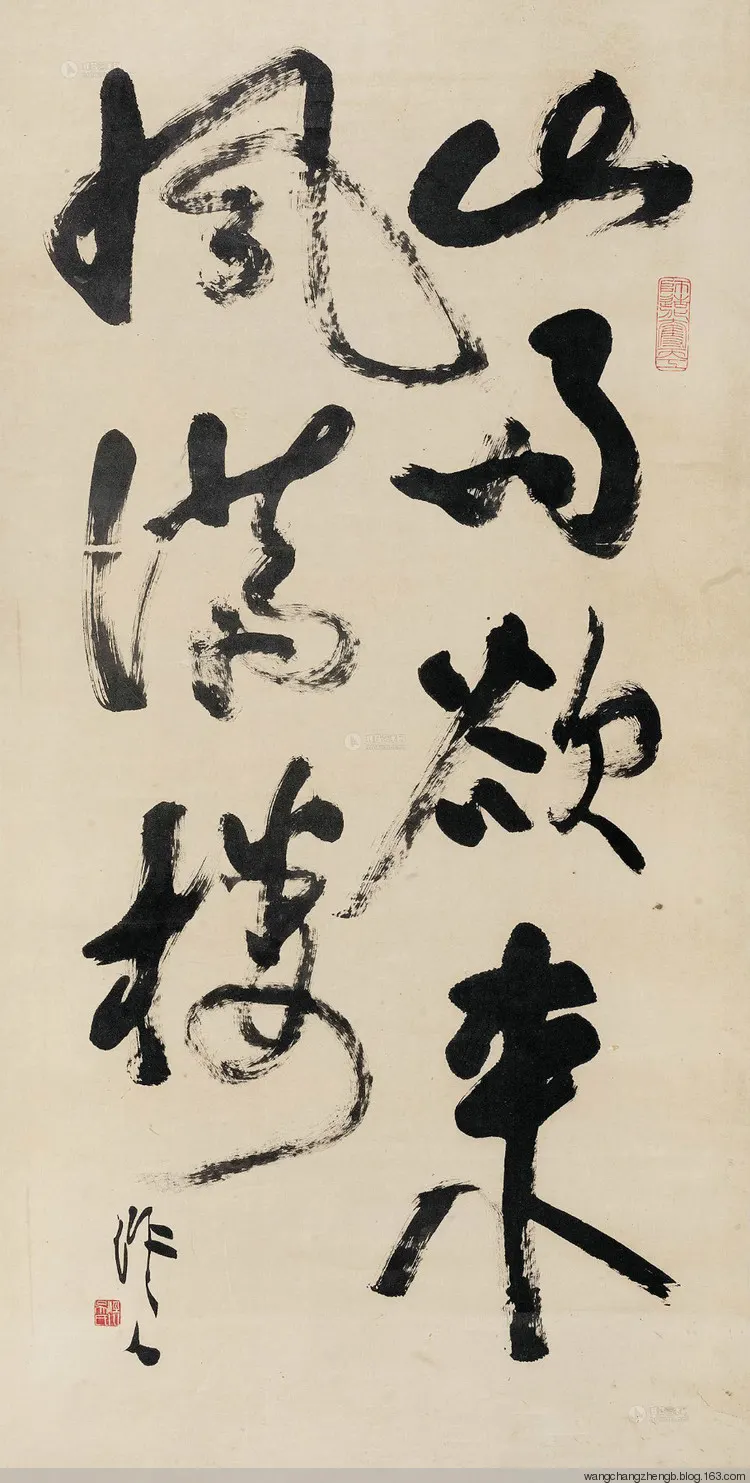 山雨欲来
风满楼
wangchangzhengb.blog.163.com